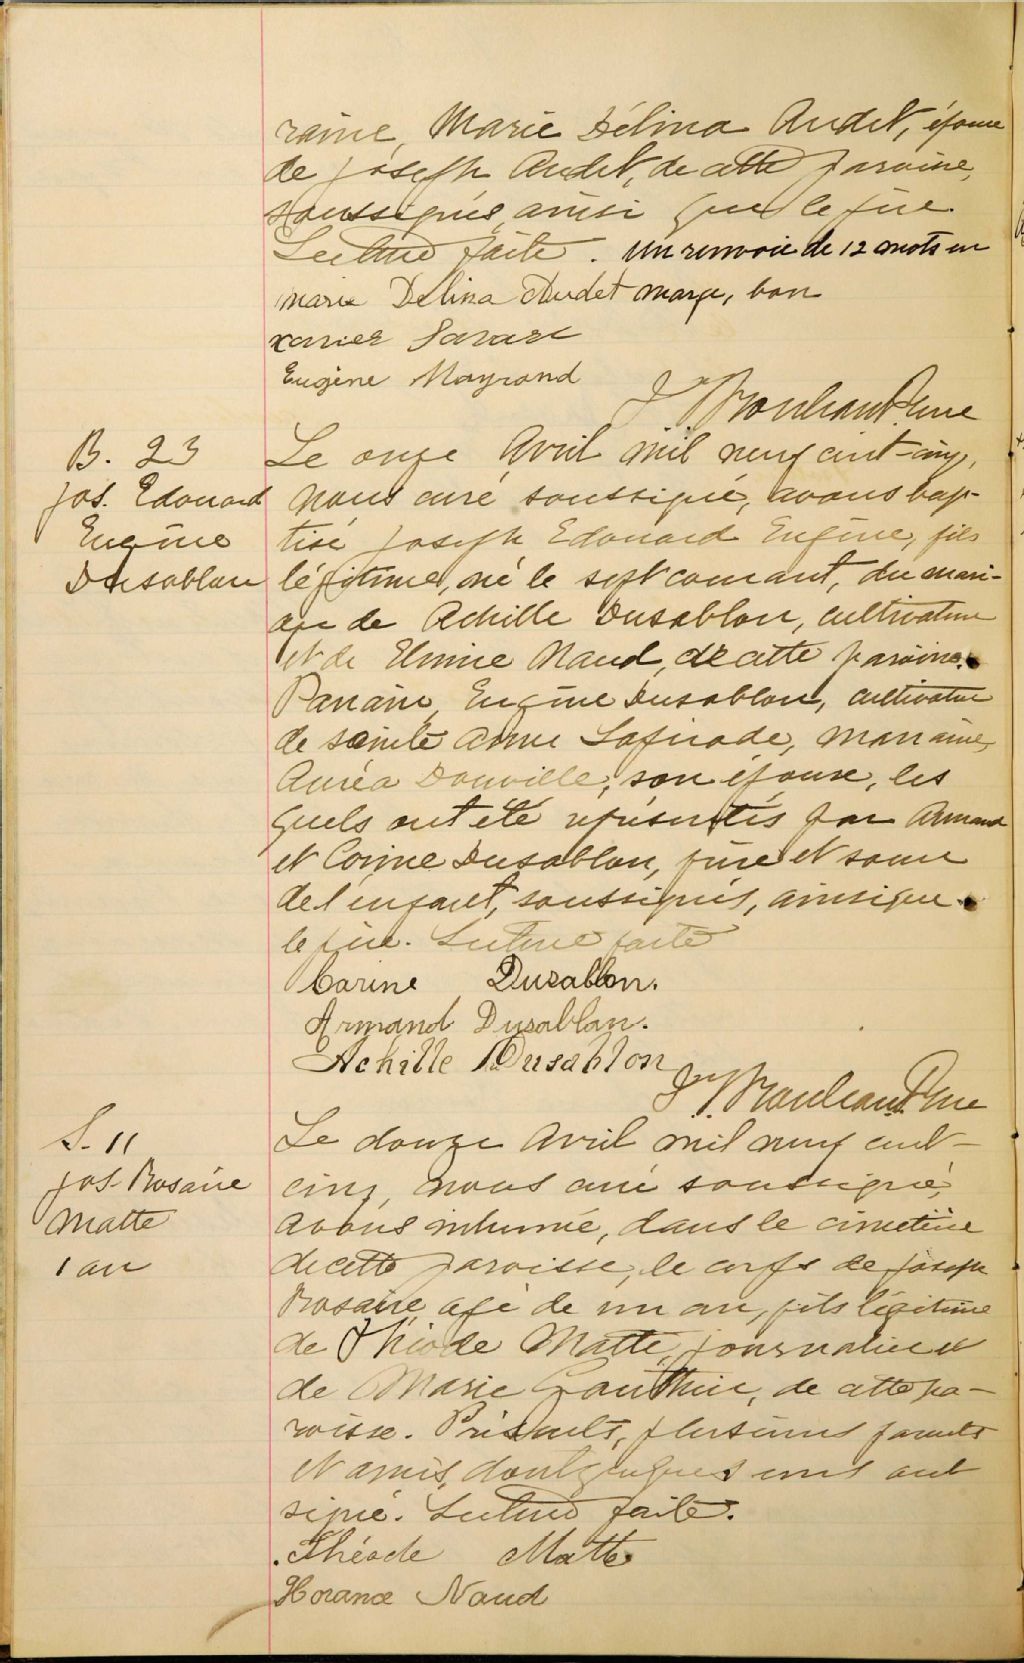 raine, Marie Délina Audet, épouse
de Joseph Audet, de cette paroisse,
soussignés ainsi que le père.
Lecture faite. Un renvoie de 12 mots en
Marie Délina Audet marge, bon
Xavier Savard
Eugène Mayrand
Ptre curé
B. 23
Jos. Edouard
Eugène
Dusablon
Le onze Avril mil neuf cent-cinq,
nous curé soussigné, avons bap-
tisé Joseph Edouard Eugène, fils
légitime, né le sept courant, du mari-
age de Achille Dusablon, cultivateur
et de Elmire Naud, de cette paroisse.
Parrain, Eugène Dusablon, cultivateur
de sainte Anne Lapérade, marraine,
Auréa Douville, son épouse, les
quels ont été représentés par Armand
et Corine Dusablon, frère et soeur
de l'enfant, soussignés, ainsi que
le père. Lecture faite
Corine Dusablon.
Armand Dusablon.
Achille Dusablon
Ptre curé
S. 11
Jos. Rosaire
Matte
1 an
Le douze Avril mil neuf cent-
cinq, nous curé soussigné,
avons inhumé, dans le cimetière
de cette paroisse, le corps de Joseph
Rosaire, agé de un an, fils légitime
de Théode Matte, journalier et
de Marie Gauthier, de cette pa-
roisse. Présents, plusieurs parents
et amis, dont quelques uns ont
signé. Lecture faite.
Théode Matte
Horance Naud